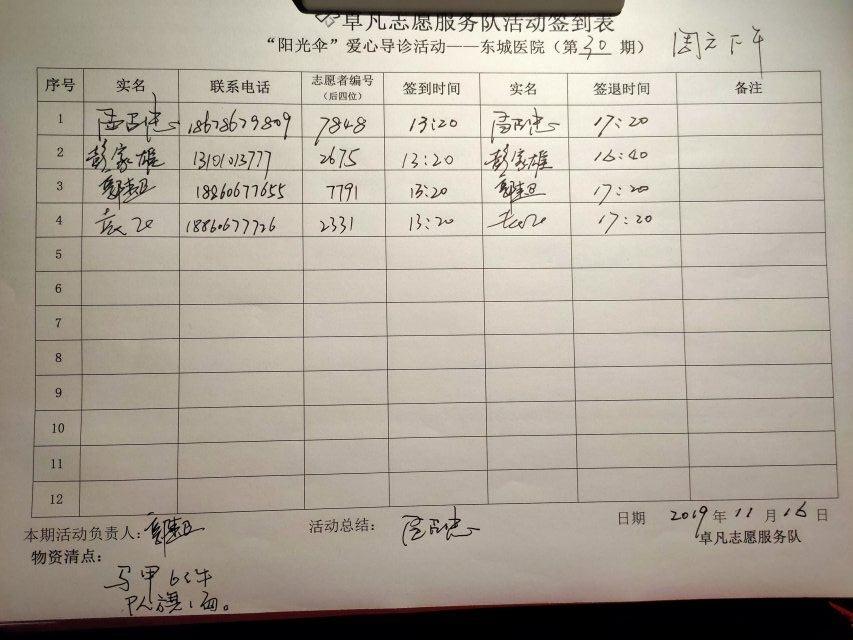 卓凡志愿服务队活动签到表
“阳光伞”爱心导诊活动——东城医院（第30期） 周六下午
序号 实名 联系电话 志愿者编号（后四位） 签到时间 实名 签退时间 备注
1 18678679809 7848 13:20 17:20
2 彭家雄 13101013777 2675 13:20 彭家雄 16:40
3 18860677655 7791 13:20 17:20
4 18860677726 2331 13:20 17:20
5
6
7
8
9
10
11
12
本期活动负责人: 活动总结: 日期 2019年11月16日
卓凡志愿服务队
物资清点:
马甲6件
队旗1面。